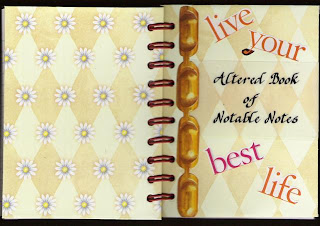 live
your
Altered Book
of
Notable Notes
best
life